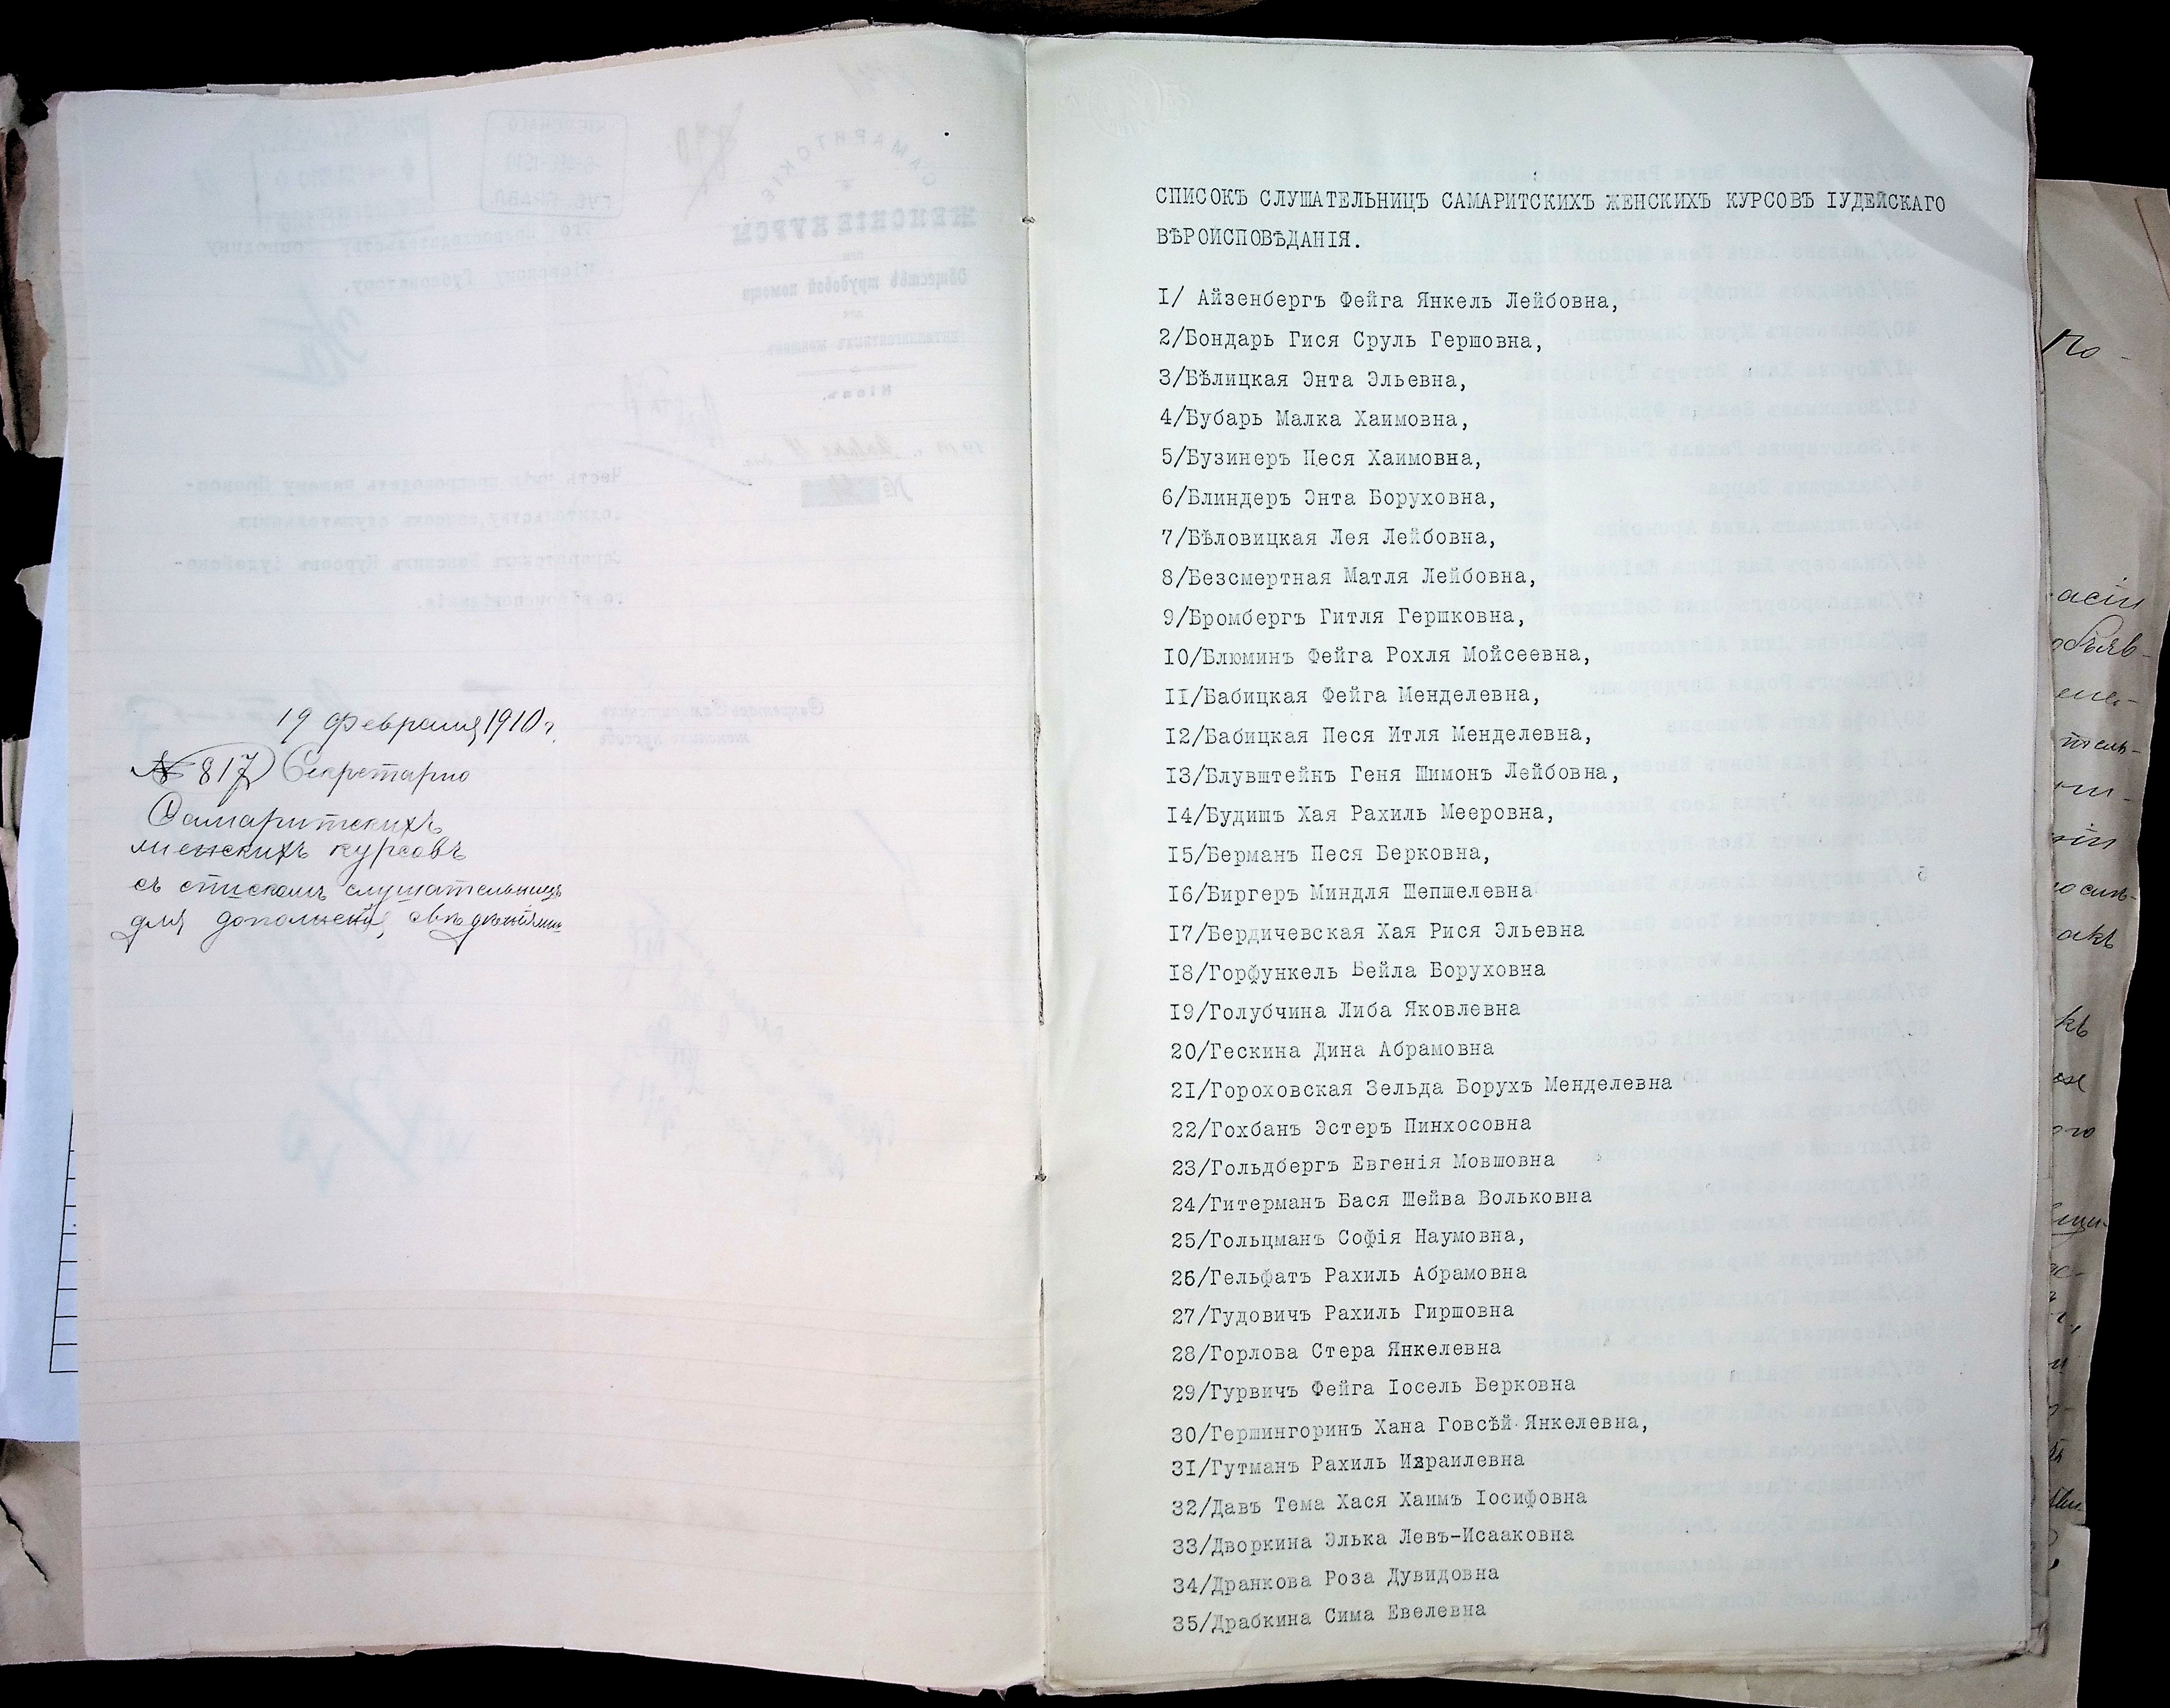 19 Февраля 1910 г.
№ 817 Секретарю
Самаритскихъ
женскихъ курсовъ
съ спискомъ слушательницъ
для дополненія свѣдѣніями
СПИСОКЪ СЛУШАТЕЛЬНИЦЪ САМАРИТСКИХЪ ЖЕНСКИХЪ КУРСОВЪ IУДЕЙСКАГО
ВѢРОИСПОВѢДАНIЯ.
I/ Айзенбергъ Фейга Янкель Лейбовна,
2/Бондарь Гися Сруль Гершовна,
3/Бѣлицкая Энта Эльевна,
4/Бубарь Малка Хаимовна,
5/Бузинеръ Песя Хаимовна,
6/Блиндеръ Энта Боруховна,
7/Бѣловицкая Лея Лейбовна,
8/Безсмертная Матля Лейбовна,
9/Бромбергъ Гитля Гершковна,
I0/Блюминъ Фейга Рохля Мойсеевна,
II/Бабицкая Фейга Менделевна,
I2/Бабицкая Песя Итля Менделевна,
I3/Блувштейнъ Геня Шимонъ Лейбовна,
I4/Будишъ Хая Рахиль Мееровна,
I5/Берманъ Песя Берковна,
I6/Биргеръ Миндля Шепшелевна
I7/Бердичевская Хая Рися Эльевна
I8/Горфункель Бейла Боруховна
I9/Голубчина Либа Яковлевна
20/Гескина Дина Абрамовна
2I/Гороховская Зельда Борухъ Менделевна
22/Гохбанъ Эстеръ Пинхосовна
23/Гольдбергъ Евгенiя Мовшовна
24/Гитерманъ Бася Шейва Вольковна
25/Гольцманъ Софiя Наумовна,
26/Гельфатъ Рахиль Абрамовна
27/Гудовичъ Рахиль Гиршовна
28/Горлова Стера Янкелевна
29/Гурвичъ Фейга Iосель Берковна
30/Гершингоринъ Хана Говсѣй Янкелевна,
3I/Гутманъ Рахиль Израилевна
32/Давъ Тема Хася Хаимъ Iосифовна
33/Дворкина Элька Левъ-Исааковна
34/Дранкова Роза Дувидовна
35/Драбкина Сима Евелевна